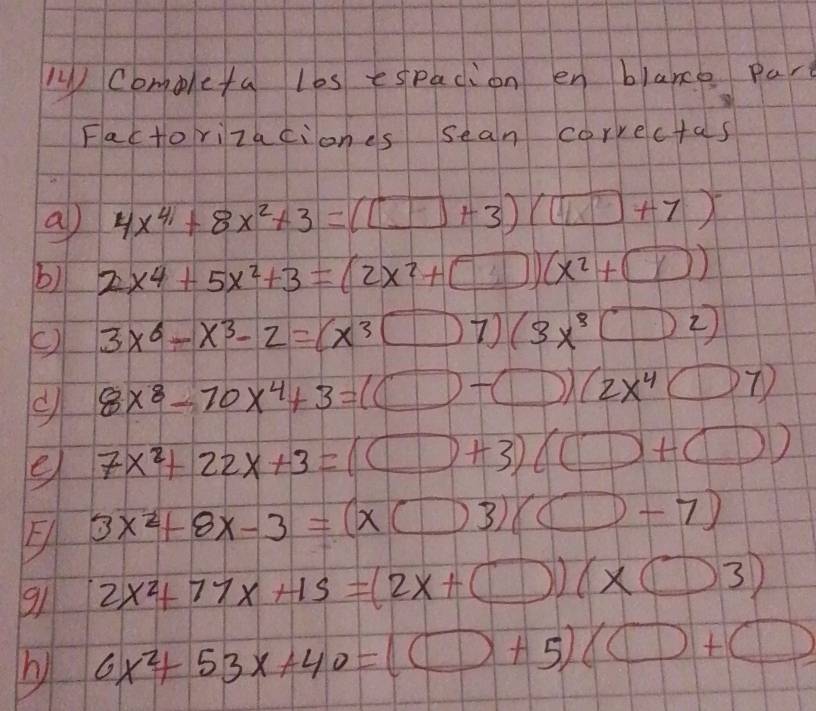 14) Completa los espacion en blanco par
Factorizaciones sean correctas
a) 4x⁴ + 8x² + 3 = (▭ + 3)(▭ + 7)
b) 2x⁴ + 5x² + 3 = (2x² + ▭)(x² + ▭)
c) 3x⁶ - x³ - 2 = (x³ ▭ 7)(3x³ ▭ 2)
d) 8x⁸ - 70x⁴ + 3 = (▭ - ▭)(2x⁴ ▭ 7)
e) 7x² + 22x + 3 = (▭ + 3)(▭ + ▭)
F) 3x² + 8x - 3 = (x ▭ 3)(▭ - 7)
g) 2x² + 77x + 15 = (2x + ▭)(x ▭ 3)
h) 6x² + 53x + 40 = (▭ + 5)(▭ + ▭